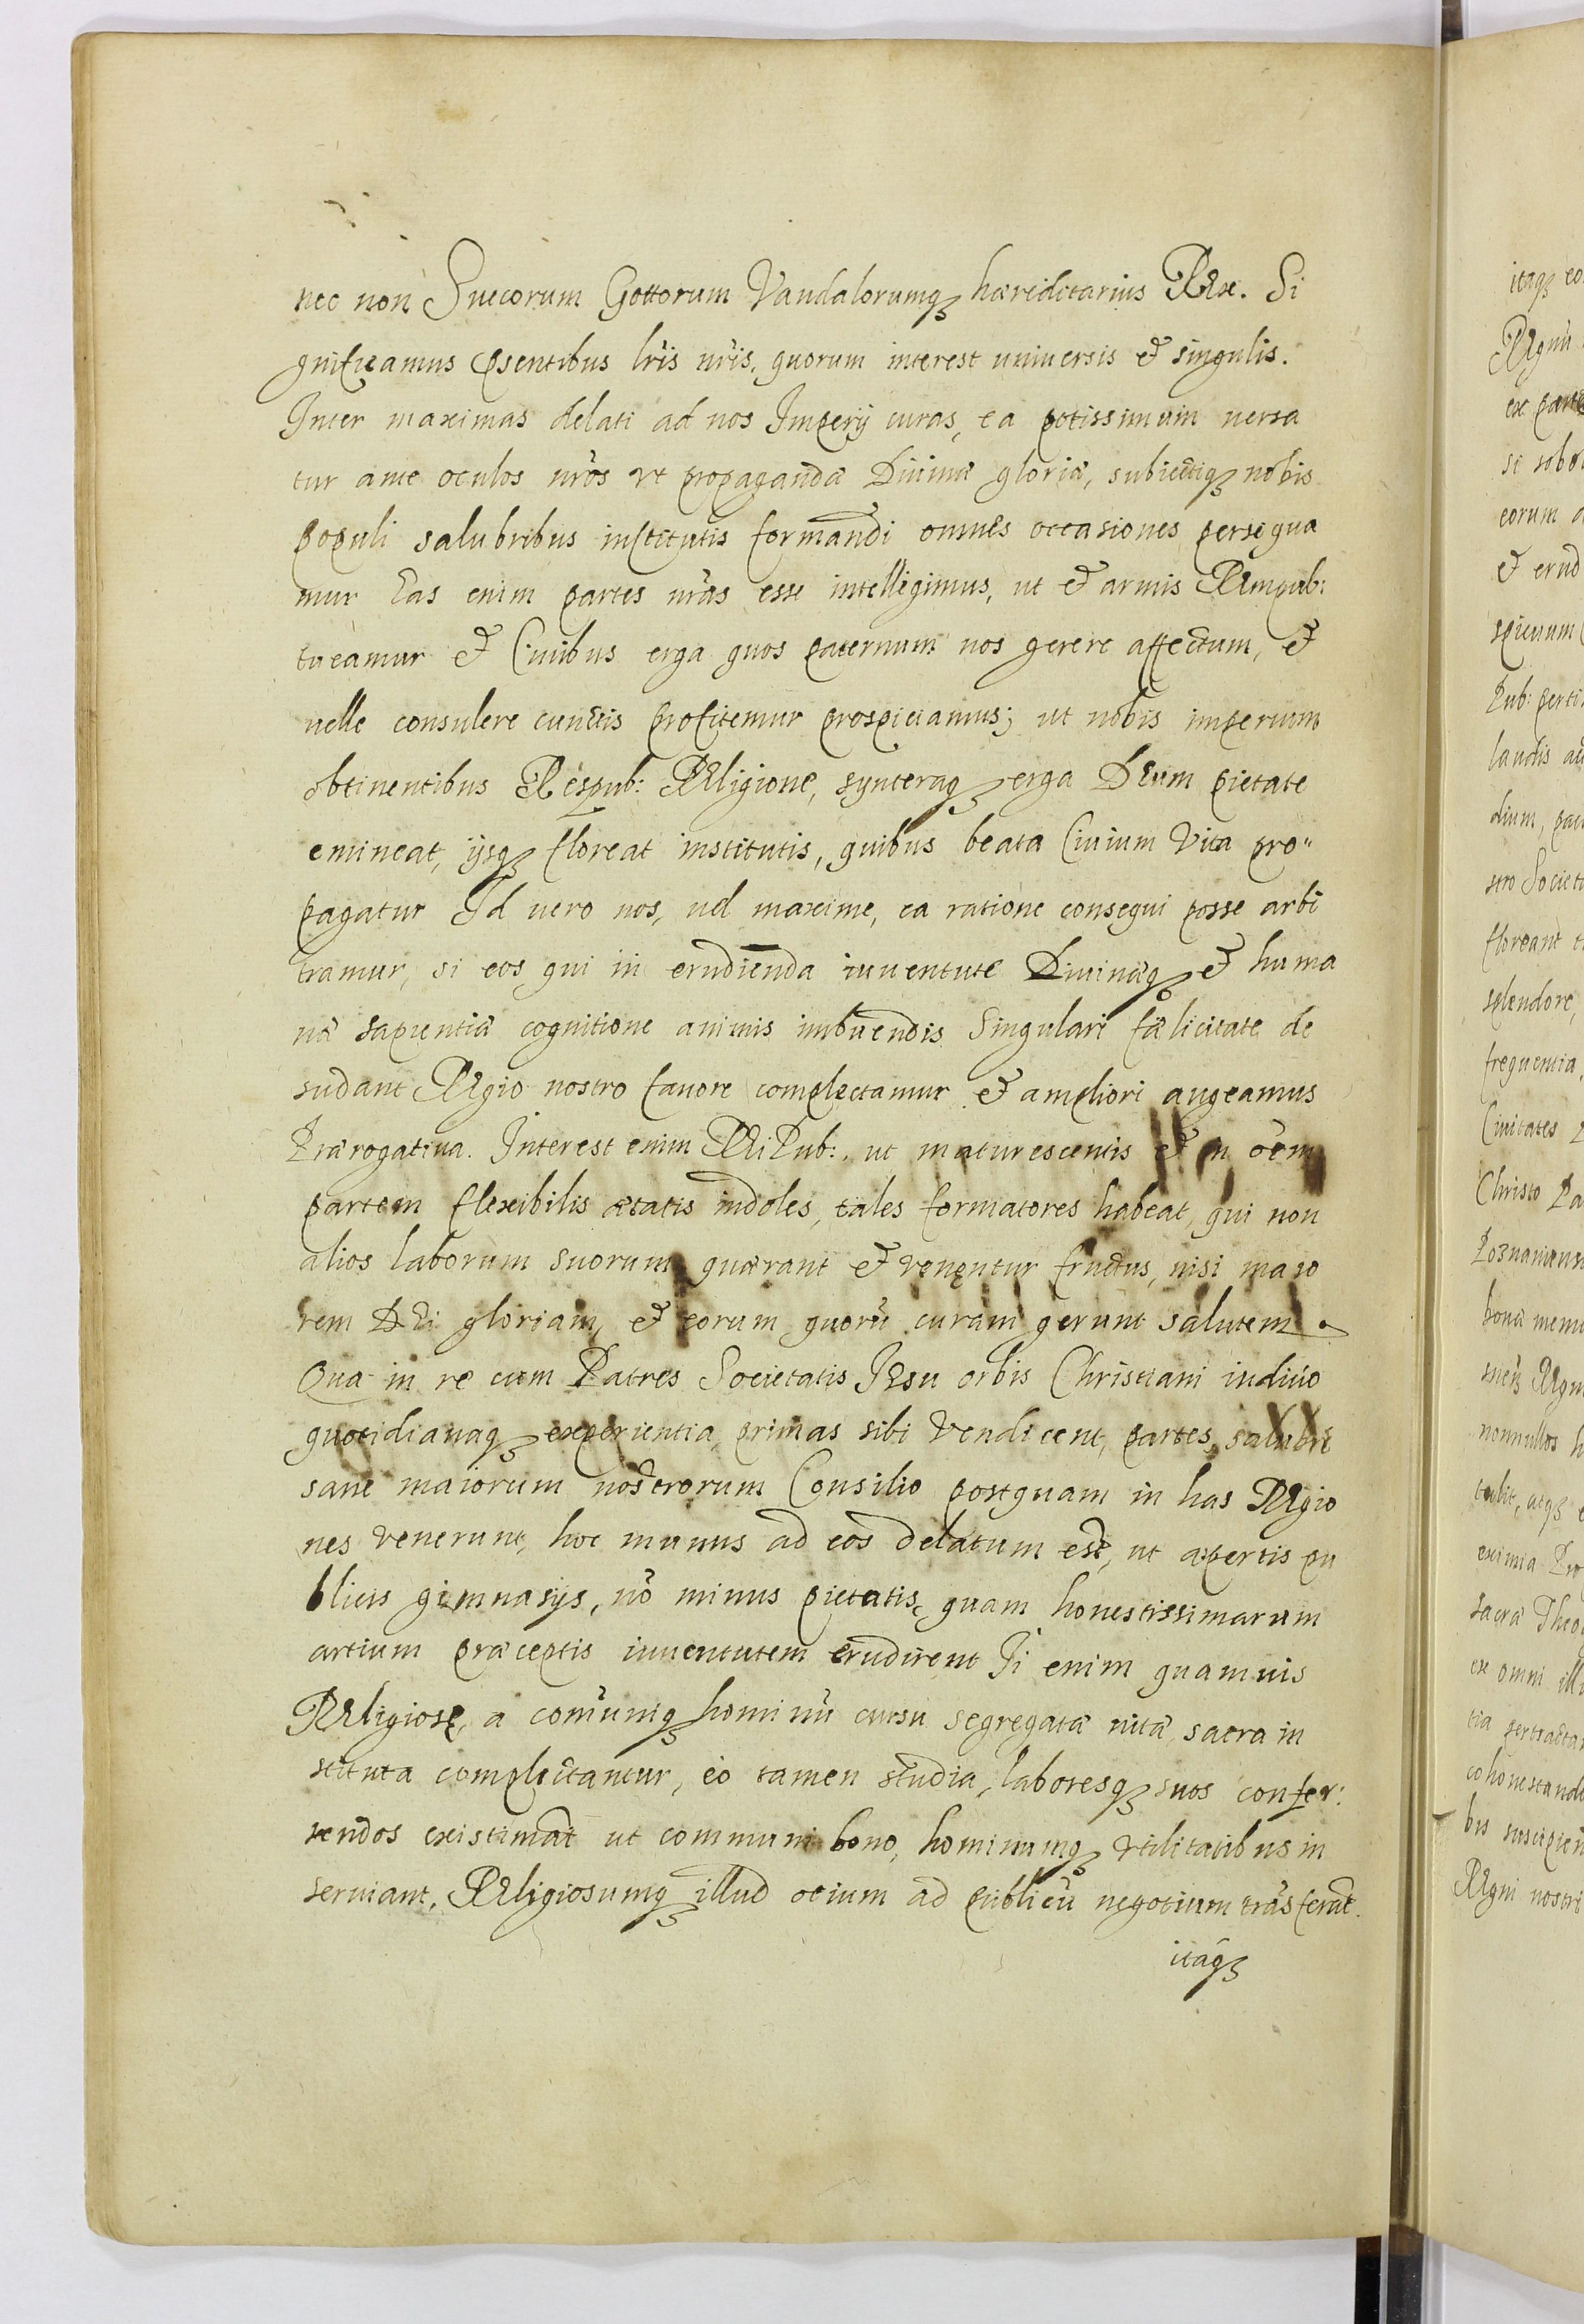 nec non Suecorum Gottorum Vandalorumq₃ hæreditarius REx. Si
gnificamus pñsentibus lr̃is nr̃is, quorum interest uniuersis et singulis.
Inter maximas delati ad nos Imperij curas, ea potissimum uersa
tur ante oculos nr̃os vt propagandæ Diuinæ gloriæ, subiectiq₃ nobis
populi salubribus institutis formandi omnes occasiones persequa
mur Eas enim partes nr̃as esse intelligimus, ut et armis REmpub:
tueamur et Ciuibus erga quos paternum nos gerere affectum, et
uelle consulere cunctis profitemur prospiciamus; ut nobis imperium
obtinentibus Respub: REligione, synceraq₃ erga DEum pietate
emineat, ijsq₃ floreat institutis, quibus beata Ciuium Vita pro"
pagatur Id uero nos, uel maxime, ea ratione consequi posse arbi
tramur, si eos qui in erudienda iuuentute Diuinæq₃ et huma
næ sapientiæ cognitione animis imbuendis Singulari fælicitate de
sudant REgio nostro fauore complectamur et ampliori augeamus
Prærogatiua. Interest enim REiPub:, ut maturescentis et in oẽm
partem flexibilis ætatis indoles, tales formatores habeat, qui non
alios laborum suorum quærant et venentur fructus, nisi maio
rem DEi gloriam, et eorum quorũ curam gerunt salutem.
Qua in re cum Patres Societatis IEsu orbis Christiani iudicio
quotidianaq₃ experientia, primas sibi vendicent, partes, salubri
sane maiorum nostrorum Consilio postquam in has REgio
nes venerunt, hoc munus ad eos delatum est, ut apertis pu
blicis gimnasijs, nõ minus pietatis, quam honestissimarum
artium præceptis iuuentutem erudirent Ii enim quamuis
REligiosę, a comũniq₃ hominũ cursu segregatæ uitæ, sacra in
stituta complectantur, eò tamen studia, laboresq₃ suos confer:
rendos existimãt ut communi bono, hominumq₃ vtilitatibus in
seruiant, REligiosumq₃ illud otium ad publicũ negotium trãsferãt.
itaq₃
itaq₃ eo
REgnũ
ex parte
si sobo
eorum a
et erud
spicuum
Pub: perti
laudis
dium,
stro Societa
floreant
splendore,
frequentia,
Ciuitates
Christo Pa
Poznanien
bonæ mem
nonnullos h
tulit, atq₃
eximia
sacræ Theo
ex omni
tia pertracta
cohonestand
bis suscipien
REgni nostri